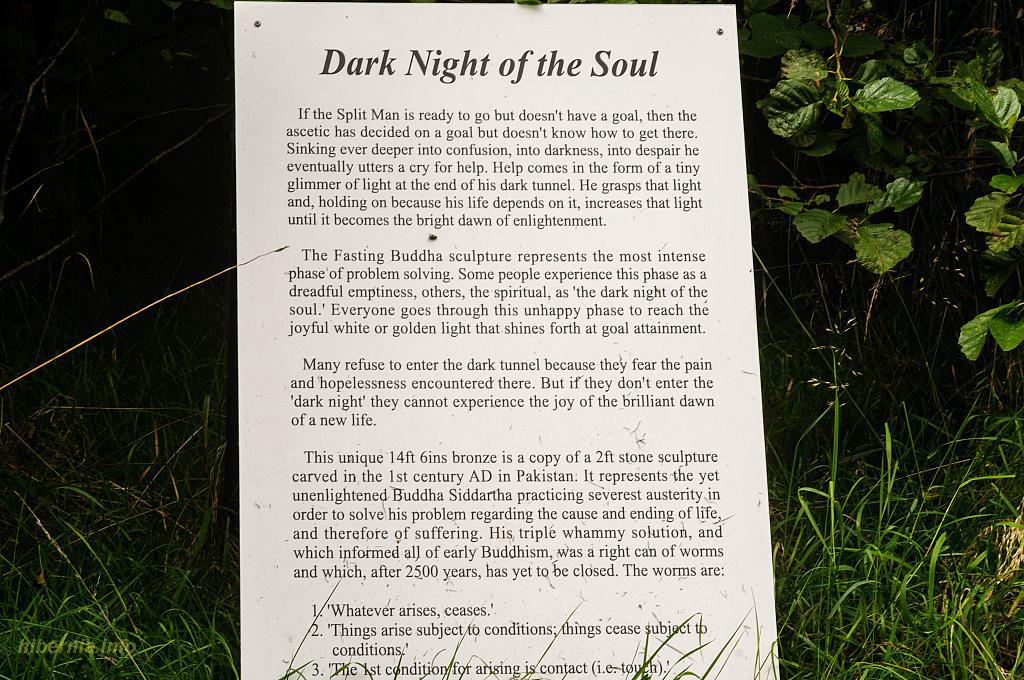 Dark Night of the Soul
If the Split Man is ready to go but doesn't have a goal, then the
ascetic has decided on a goal but doesn't know how to get there.
Sinking ever deeper into confusion, into darkness, into despair he
eventually utters a cry for help. Help comes in the form of a tiny
glimmer of light at the end of his dark tunnel. He grasps that light
and, holding on because his life depends on it, increases that light
until it becomes the bright dawn of enlightenment.
The Fasting Buddha sculpture represents the most intense
phase of problem solving. Some people experience this phase as a
dreadful emptiness, others, the spiritual, as 'the dark night of the
soul.' Everyone goes through this unhappy phase to reach the
joyful white or golden light that shines forth at goal attainment.
Many refuse to enter the dark tunnel because they fear the pain
and hopelessness encountered there. But if they don't enter the
'dark night' they cannot experience the joy of the brilliant dawn
of a new life.
This unique 14ft 6ins bronze is a copy of a 2ft stone sculpture
carved in the 1st century AD in Pakistan. It represents the yet
unenlightened Buddha Siddartha practicing severest austerity in
order to solve his problem regarding the cause and ending of life,
and therefore of suffering. His triple whammy solution, and
which informed all of early Buddhism, was a right can of worms
and which, after 2500 years, has yet to be closed. The worms are:
1. 'Whatever arises, ceases.'
2. 'Things arise subject to conditions; things cease subject to
conditions.'
3. 'The 1st condition for arising is contact (i.e. touch).'
hibernia.info